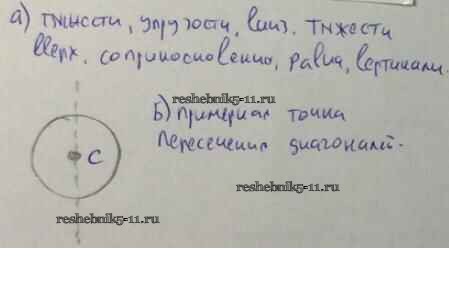 а) тяжести, упругости, вниз. тяжести
вверх, соприкосновению, равна, вертикали.
reshebnik5-11.ru
Б) Примерная точка
пересечения диагоналей.
C
reshebnik5-11.ru
reshebnik5-11.ru